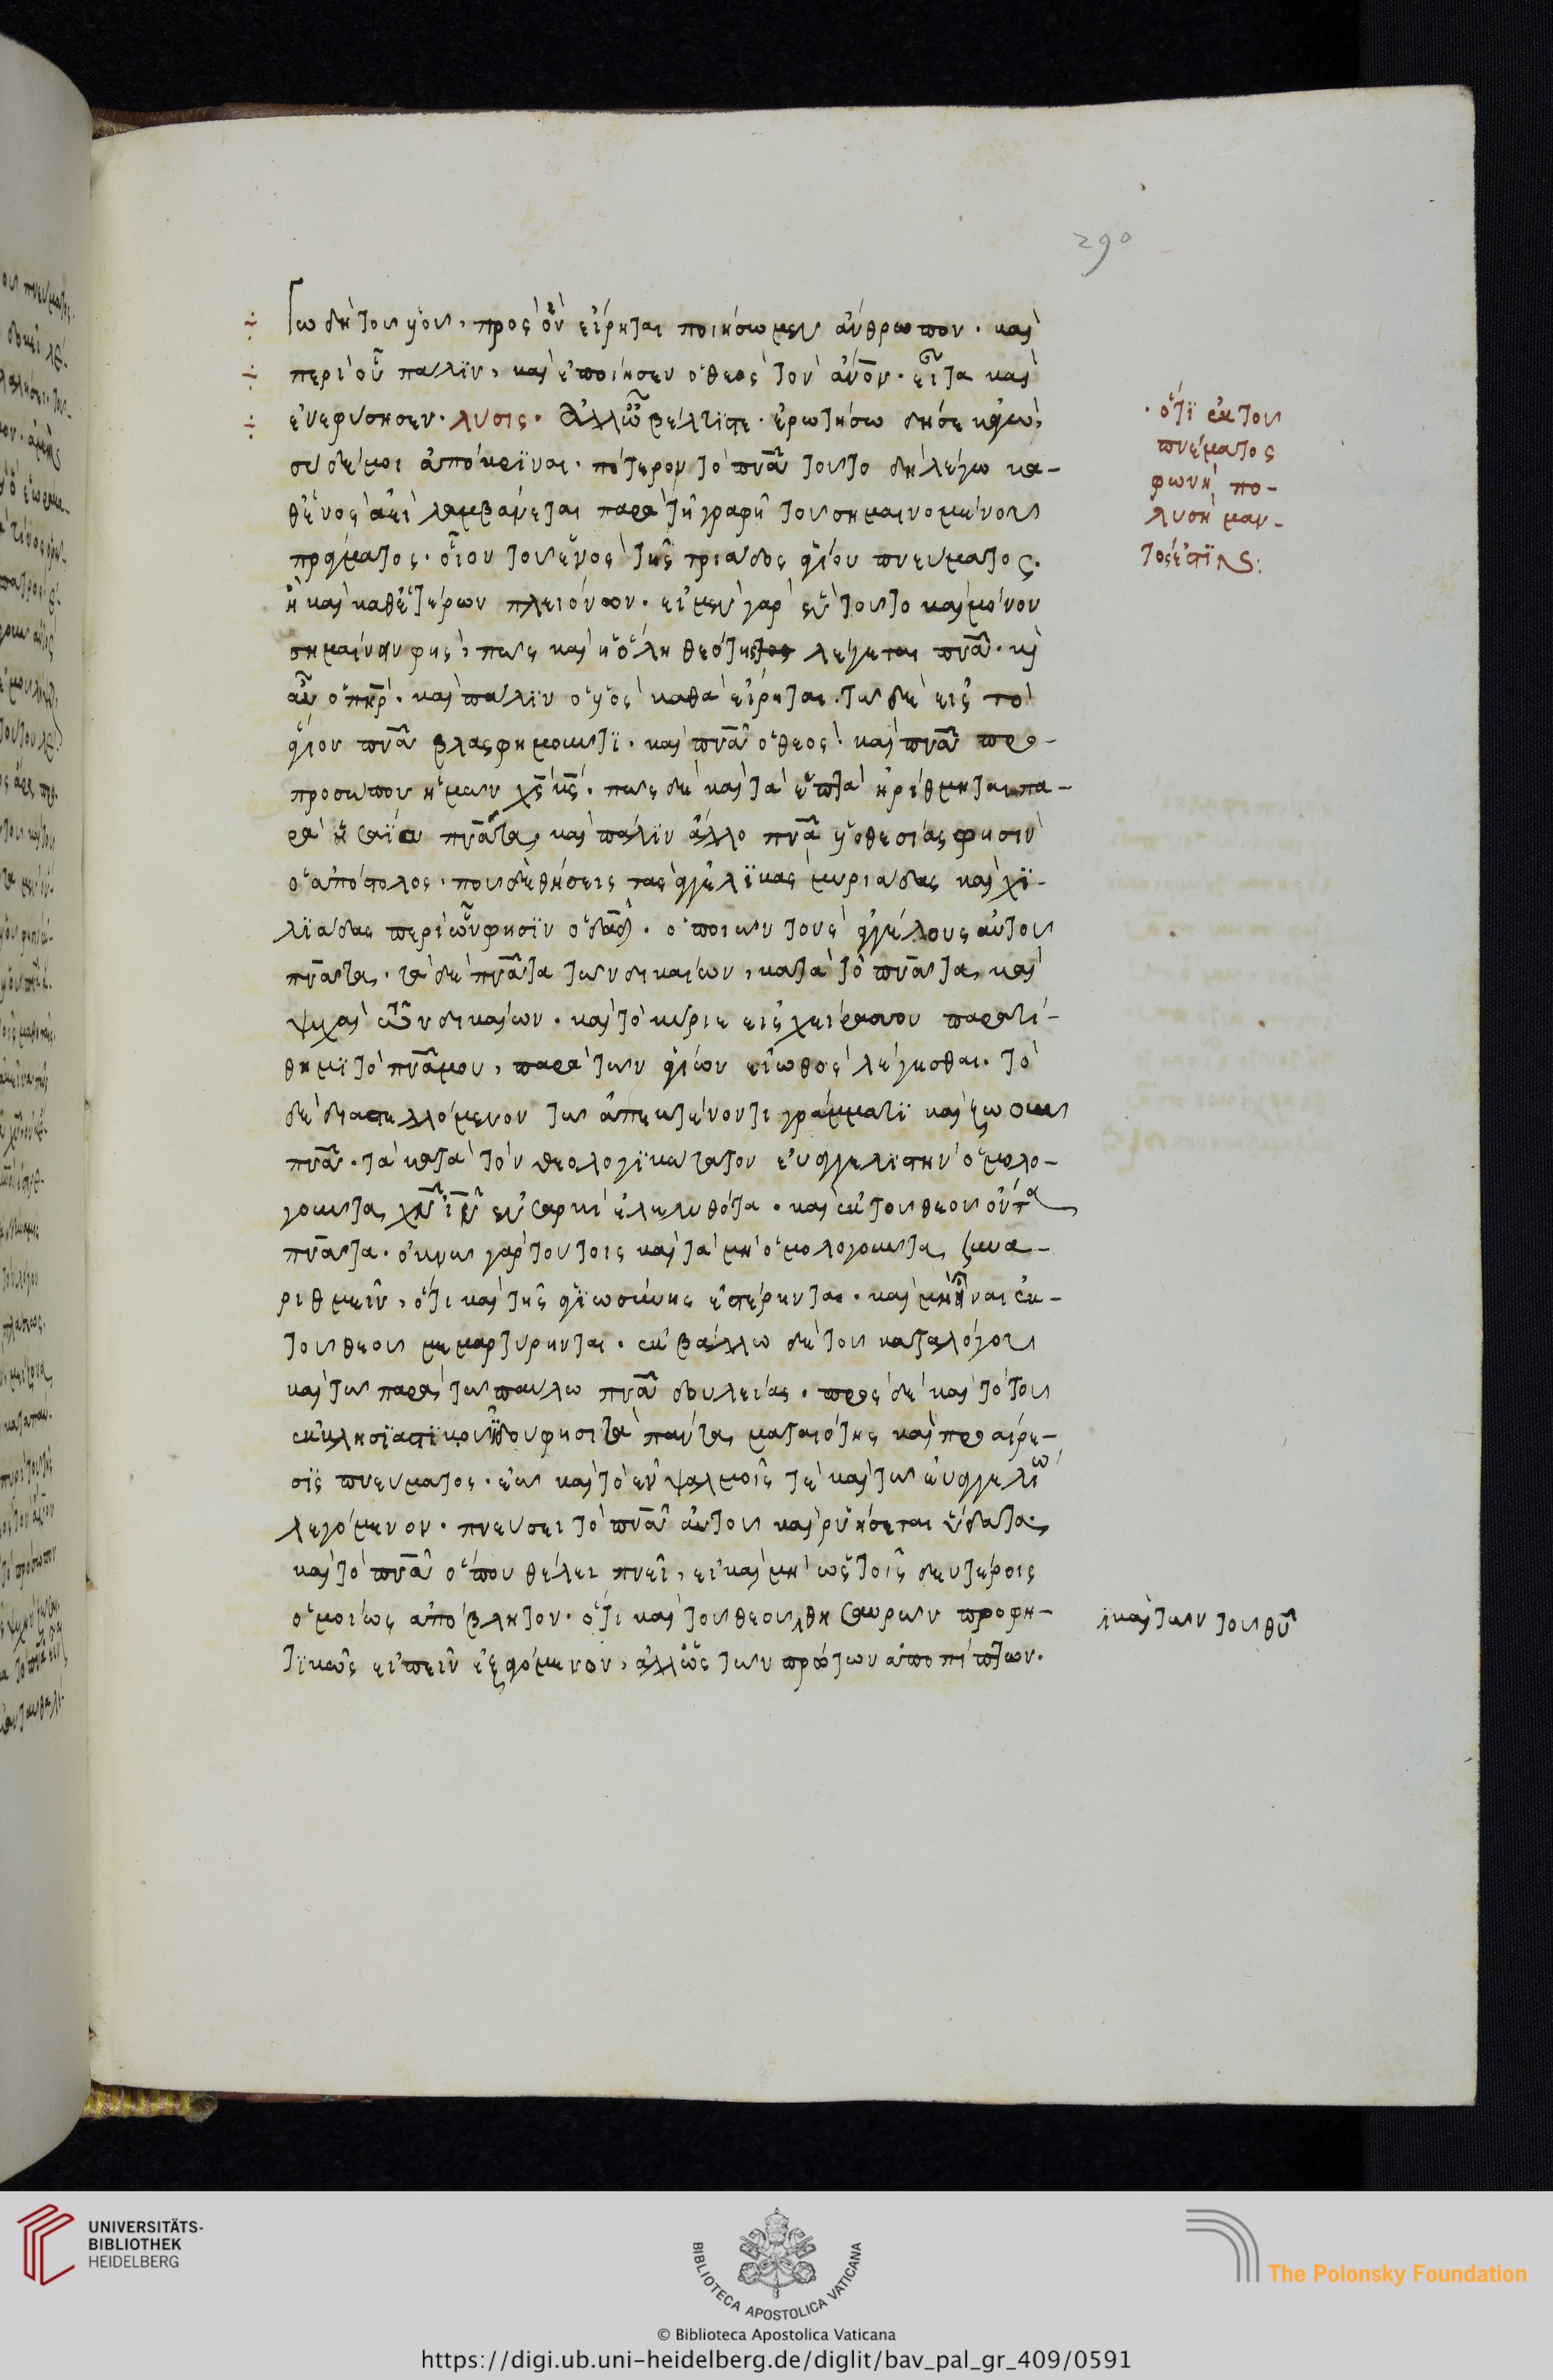 290
τω δὴ τοῦ υἱοῦ, πρὸς ὃν εἴρηται ποιήσωμεν ἄνθρωπον. καὶ
περὶ οὗ πάλϊν, καὶ ἐποίησεν ὁ θεὸς τὸν ἄνο̅ν. εἶτα καὶ
ἐνεφύσησεν. λύσις. Ἀλλ' ὦ βέλτιστε. ἐρωτήσω δή σε κἀγὼ,
σὺ δέ μοι ἀπόκρϊναι. πότερον τὸ πνᾶ τοῦτο δὴ λέγω κα-
θενὸς ἀεὶ λαμβάνεται παρὰ τῇ γραφῇ τοῦ σημαινομένου
πράγματος. οἷον τοῦ ἑνὸς τῆς τριάδος ἁγίου πνεύματος.
ἢ καὶ καθ' ἑτέρων πλειόνων. εἰ μὲν γὰρ ἓν τοῦτο καὶ μόνον
σημαίνειν φῃς, πως καὶ ἡ ὅλη θεότης λέγεται πνᾶ. κὶ
αὖ ὁ πη̅ρ. καὶ πάλϊν ὁ υἱὸς καθὰ εἴρηται. τω δὲ εἰς τὸ
ἅγιον πνᾶ βλασφημοῦντϊ. καὶ πνᾶ ὁ θεός. καὶ πνᾶ προ-
προσώπου ἡμῶν χς̅ κς̅. πῶς δὲ καὶ τὰ ἑπτὰ ἠρίθμηται πα-
ρὰ ἡσαΐα πνᾶτα, καὶ πάλϊν ἄλλο πνᾶ υἱοθεσίας φησὶν
ὁ ἀπόστολος. ποῦ δὲ θήσεις τὰς ἀγγελϊκὰς μυριάδας καὶ χϊ-
λϊάδας περὶ ὧν φησϊν ὁ δα̅δ. ὁ ποιῶν τοὺς ἀγγέλους αὐτοῦ
πνᾶτα. τὰ δὲ πνᾶτα τῶν δικαίων, κατὰ τὸ πνᾶτα, καὶ
ψυχαὶ τῶν δικαίων. καὶ τὸ κύριε εἰς χεῖράς σου παρατί-
θημϊ τὸ πνᾶ μου, παρὰ τῶν ἁγίων εἰωθὸς λέγεσθαι. τὸ
δὲ διαστελλόμενον τῶ ἀπεκτένοντι γράμματϊ καὶ ζωοῦν
πνᾶ. τὰ κατὰ τὸν θεολογϊκώτατον εὐαγγελϊστὴν ὁμολο-
γοῦντα, χν̅ ϊν̅ ἐν σαρκὶ ἐληλυθότα. καὶ ἐκ τοῦ θεοῦ ὄντα
πνᾶτα. ὀκνῶ γὰρ τούτοις καὶ τὰ μὴ ὁμολογοῦντα, συνα-
ριθμεῖν, ὅτι καὶ τῆς ἁγϊωσύνης ἐστέρηνται. καὶ μὴ εἶναι ἐκ
τοῦ θεοῦ μεμαρτύρηνται. ἐκβάλλω δὲ τοῦ καταλόγου
καὶ τῶ παρὰ τῶ παύλω πνᾶ δουλείας. πρὸς δὲ καὶ τὸ τοῦ
ἐκκλησϊαστϊκοῦ ἰδοὺ φησι τὰ πάντα, ματαιότης καὶ προαίρε-
σϊς πνεύματος. ἐῶ καὶ τὸ ἐν ψαλμοῖς τὲ καὶ τῶ εὐαγγελίω
λεγόμενον. πνεύσει τὸ πνᾶ αὐτοῦ καὶ ῥυήσεται ὕδατα,
καὶ τὸ πνᾶ ὅπου θέλει πνεῖ, εἰ καὶ μὴ ὡς τοῖς δευτέροις
ὁμοίως ἀπόβλητον. ὅτι καὶ τοῦ θεοῦ, θησαυρῶν προφη-
τϊκῶς εἰπεῖν ἐξαγόμενον, ἀλλ' ὡς τῶν πρώτων ἀποπίπτων.
. ὅτϊ ἐκ τοῦ
πνέματος
φωνὴ πο-
λυσήμαν-
τός ἐστϊν:
ϊ καὶ τῶν τοῦ θυ̅
UNIVERSITÄTS-
BIBLIOTHEK
HEIDELBERG
BIBLIOTECA APOSTOLICA VATICANA
The Polonsky Foundation
© Biblioteca Apostolica Vaticana
https://digi.ub.uni-heidelberg.de/diglit/bav_pal_gr_409/0591